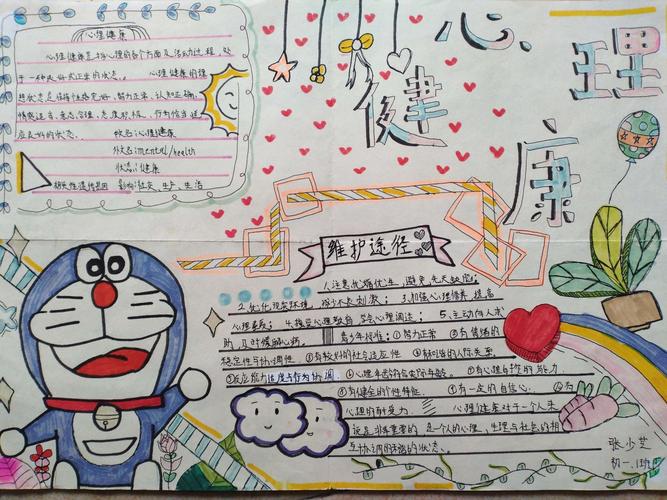 心理健康
心理健康
心理健康是指心理的各个方面及活动过程处
于一种良好或正常的状态。 心理健康的理
想状态是保持性格完好、智力正常、认知正确、
情感适当、意志合理、态度积极、行为恰当、适
应良好的状态。 中文名:心理健康
外文名:mental health
状态:健康
相关性:遗传基因 影响:社交、生产、生活
维护途径
1.注意优婚优生,避免先天缺陷;
2.优化现实环境,减少不良刺激;3.加强心理修养,提高
心理素质;4.接受心理教育,学会心理调适;5.主动向人求
助,及时倾诉心病。 青少年标准:①智力正常 ②有情绪的
稳定性与协调性 ③有较好的社会适应性 ④有和谐的人际关系
⑤反应能力适度与行为协调 ⑥心理年龄符合实际年龄。⑦有心理自控的能力
⑧有健全的个性特征 ⑨有一定的自信心。⑩为
心理的耐受力 心理健康对于一个人来
说是非常重要的,是个人的心理、生理与社会的相
互协调的和谐的状态。
张少芝
初一、1班